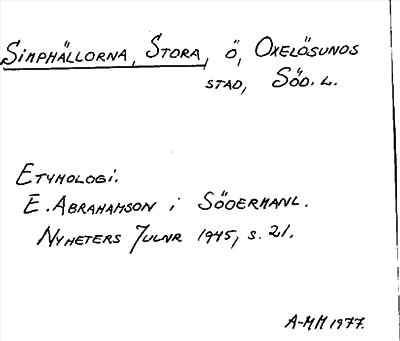 SIMPHÄLLORNA, STORA, Ö, OXELÖSUNDS
STAD, SÖD. L.
ETYMOLOGI.
E. ABRAHAMSON i SÖDERMANL.
NYHETERS JULNR 1945, s. 21.
A-MM 1977.